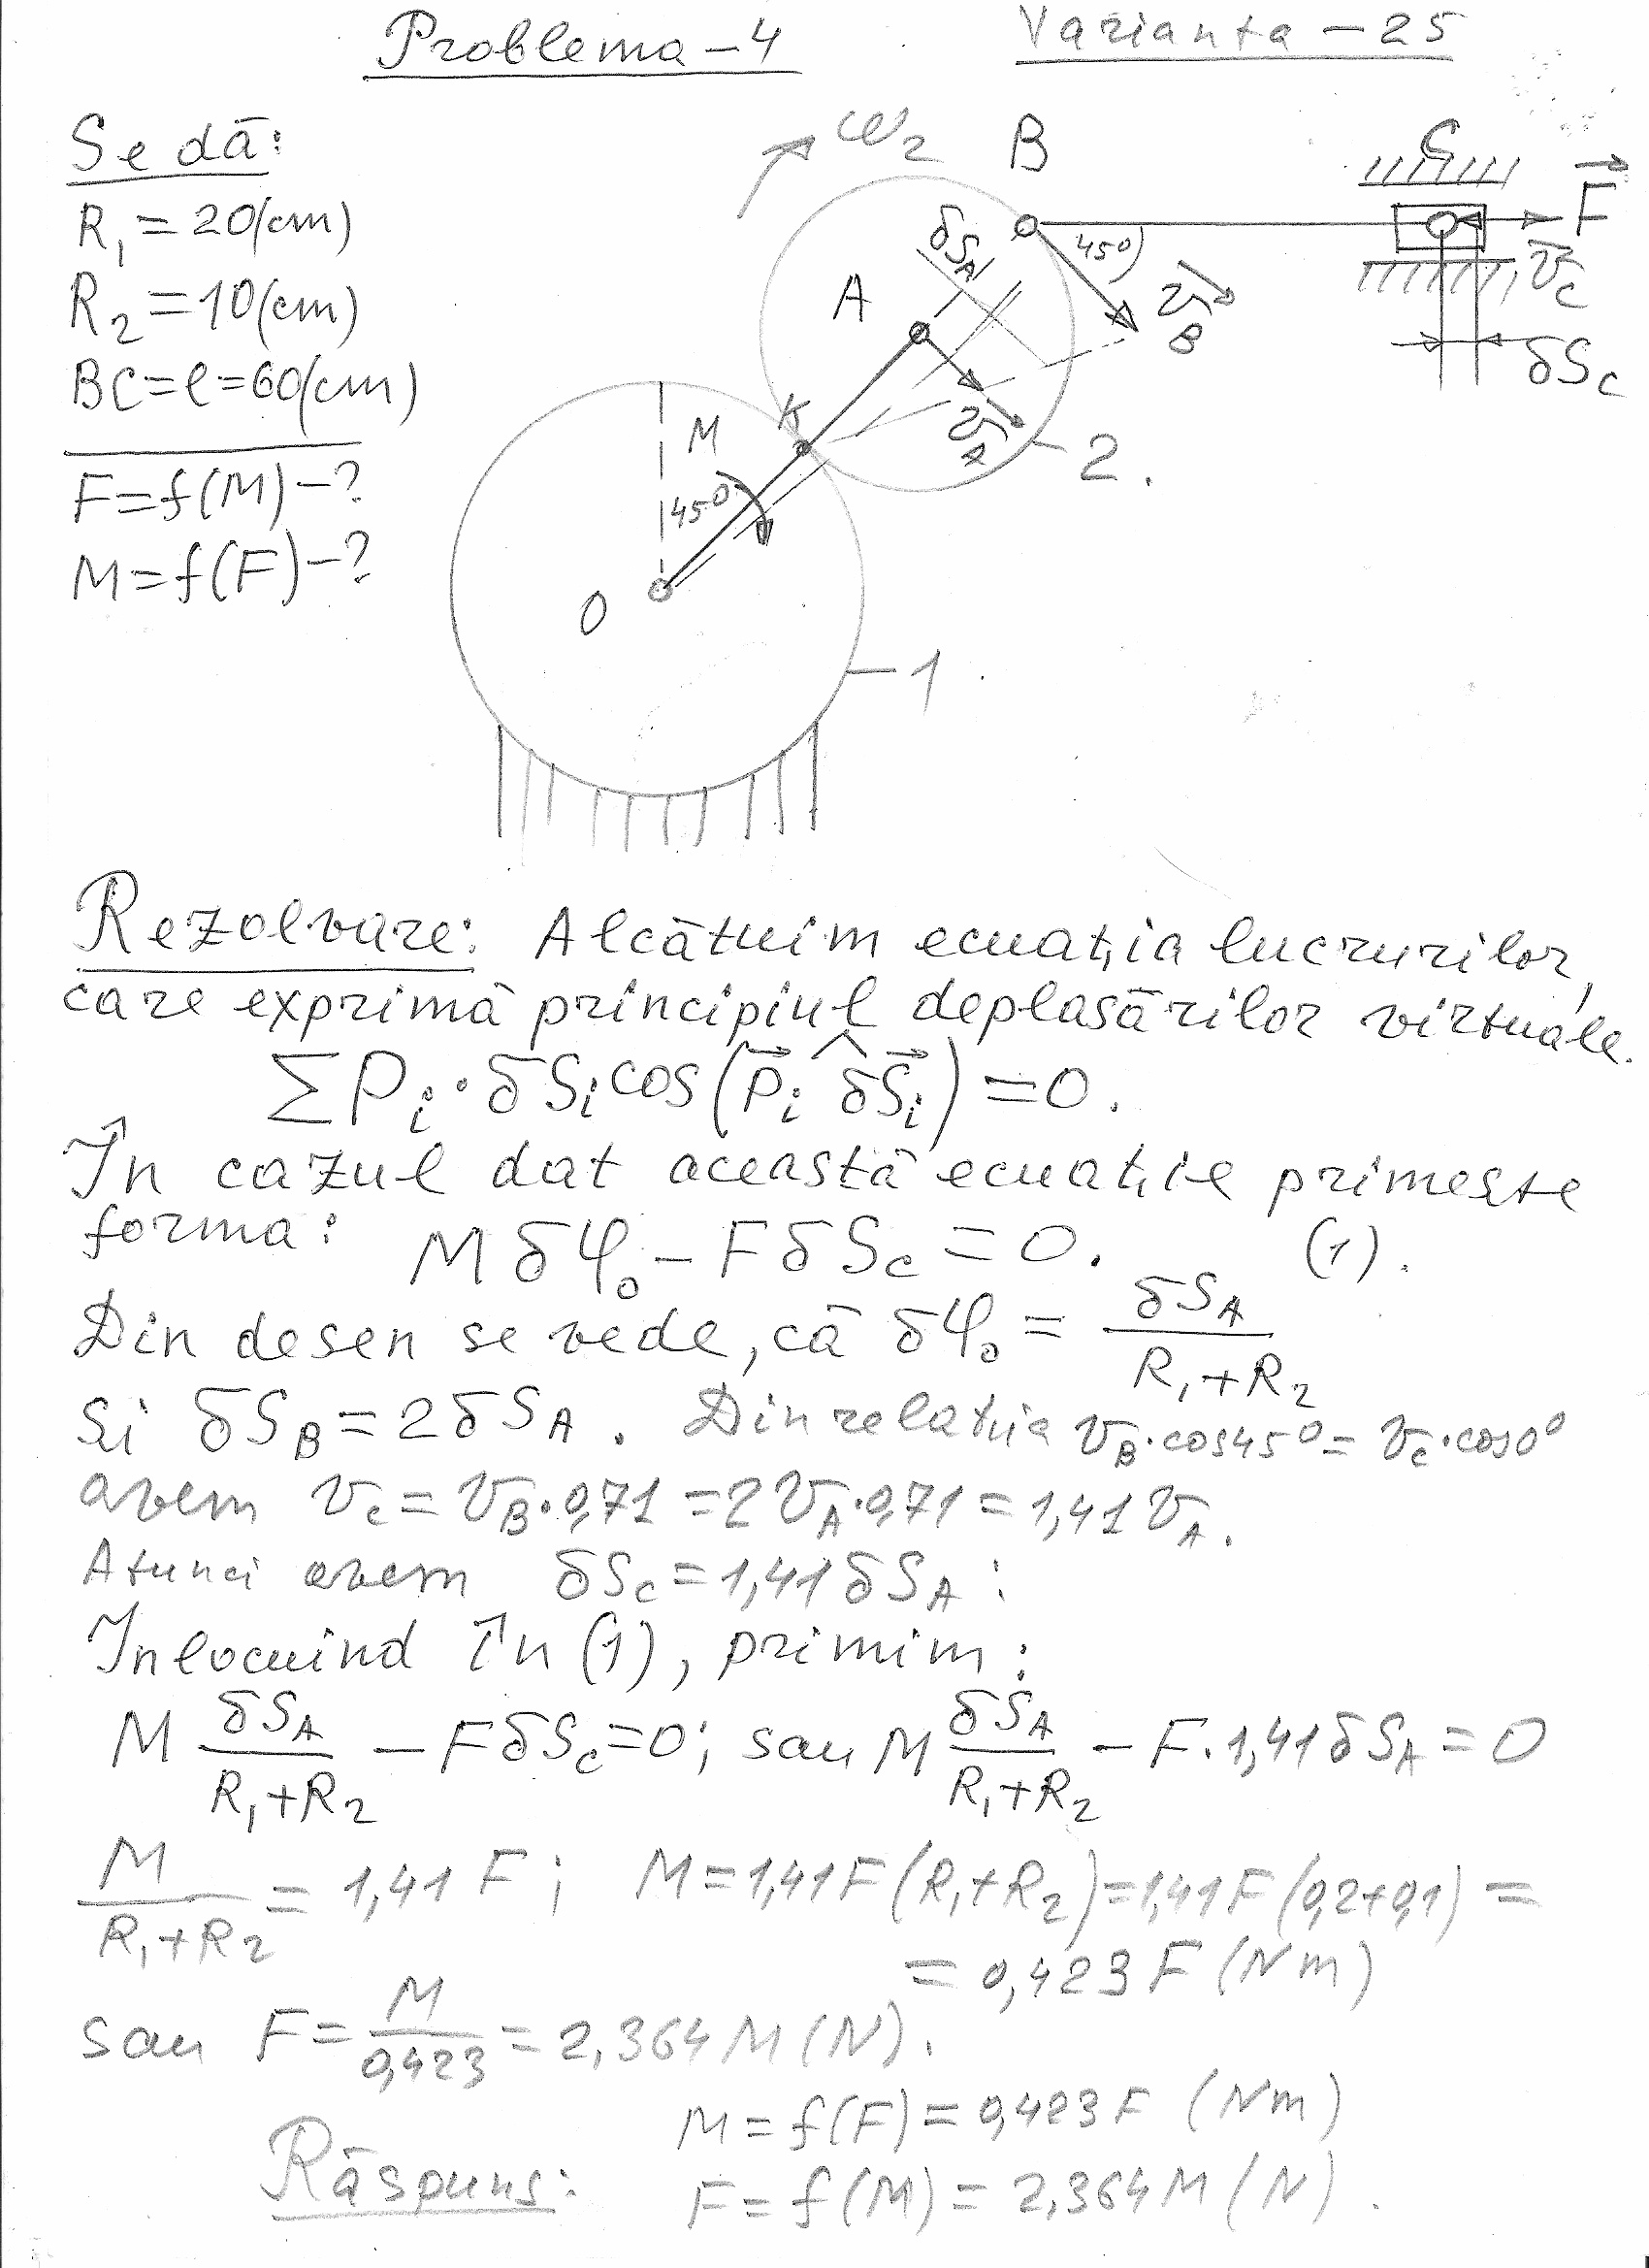 Problema-4 Varianta-25
Se dă:
R₁=20(cm)
R₂=10(cm)
BC=l=60(cm)
F=f(M)-?
M=f(F)-?
ω₂
B
C
F
δS_A
45°
A
v_B
v_C
δS_C
K
M
v_A
2.
45°
O
1
Rezolvare: Alcătuim ecuația lucrurilor,
care exprimă principiul deplasărilor virtuale.
ΣPᵢ·δSᵢcos(P⃗ᵢ^δS⃗ᵢ)=0.
În cazul dat această ecuație primește
forma: Mδφ₀-FδS_C=0. (1).
Din desen se vede, că δφ₀=δS_A/(R₁+R₂)
Si δS_B=2δS_A. Din relația v_B·cos45°=v_C·cos0°
avem v_C=v_B·0,71=2v_A·0,71=1,41v_A.
Atunci avem δS_C=1,41δS_A:
Înlocuind în (1), primim:
M δS_A/(R₁+R₂) - FδS_C=0; sau M δS_A/(R₁+R₂) - F·1,41δS_A=0
M/(R₁+R₂)=1,41F; M=1,41F(R₁+R₂)=1,41F(0,2+0,1)=
=0,423F(Nm)
sau F=M/0,423=2,364M(N).
M=f(F)=0,423F (Nm)
Răspuns: F=f(M)=2,364M(N).